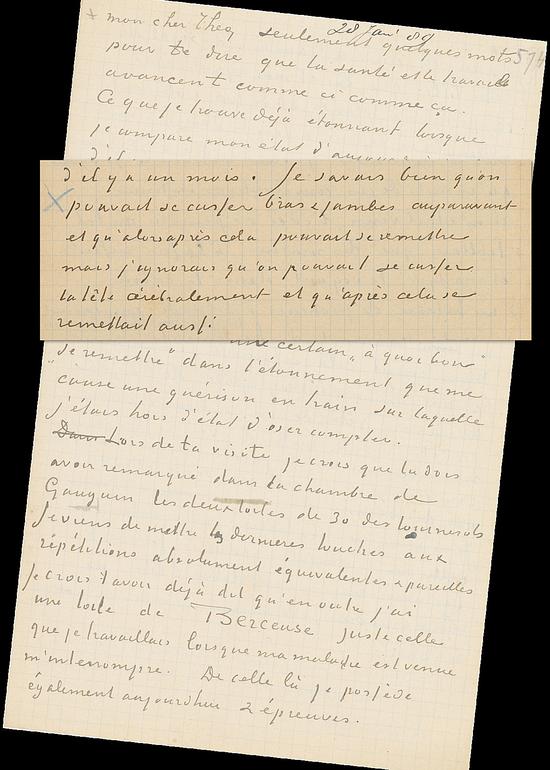 28 Jan. 89
mon cher Theo, seulement quelques mots 574
pour te dire que la santé et le travail
avancent comme ci comme ça.
Ce que je trouve déjà étonnant lorsque
je compare mon état d'aujourd'hui
d'il
d'il y a un mois. Je savais bien qu'on
pouvait se casser bras & jambes auparavant
et qu'alors après cela pouvait se remettre
mais j'ignorais qu'on pouvait se casser
la tête cérébralement et qu'après cela se
remettait aussi.
une certain „à quoi bon
se remettre" dans l'étonnement que me
cause une guérison en train sur laquelle
j'étais hors d'état d'oser compter.
Dans Lors de ta visite je crois que tu dois
avoir remarqué dans la chambre de
Gauguin les deux toiles de 30 des tournesols
Je viens de mettre les dernieres touches aux
répétitions absolument équivalentes & pareilles
Je crois t'avoir déjà dit qu'en outre j'ai
une toile de Berceuse juste celle
que je travaillais lorsque ma maladie est venue
m'interrompre. De celle là je possède
également aujourdhui 2 épreuves.